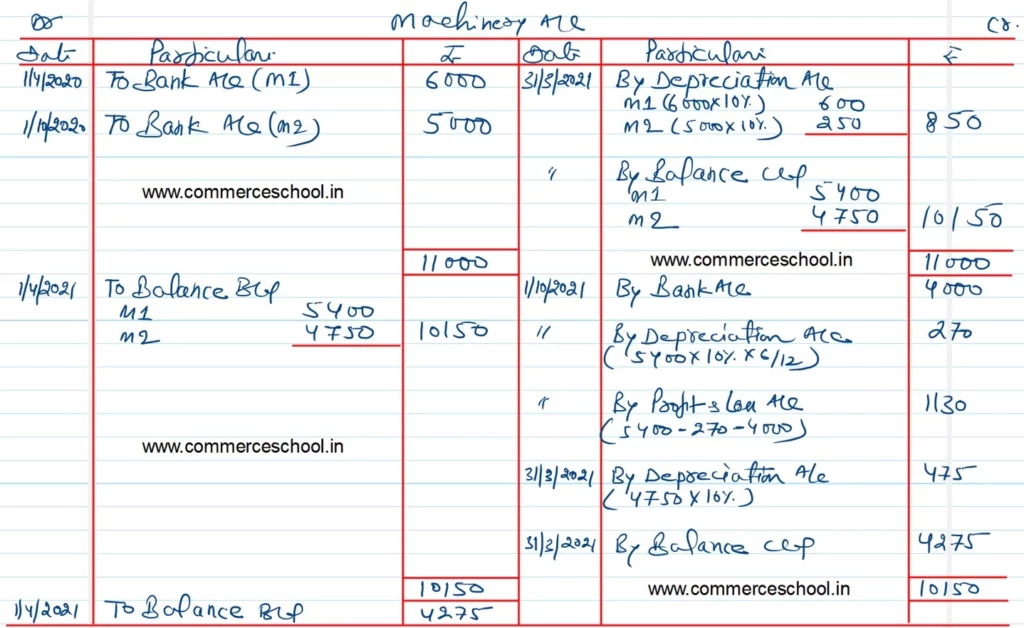 Dr Machinery A/c Cr.
Date Particulars ₹ Date Particulars ₹
1/4/2020 To Bank A/c (M1) 6000 31/3/2021 By Depreciation A/c
M1 (6000x10%) 600
1/10/2020 To Bank A/c (M2) 5000 M2 (5000x10%) 250 850
" By Balance c/p
M1 5400
www.commerceschool.in
M2 4750 10150
11000 www.commerceschool.in 11000
1/4/2021 To Balance B/p 1/10/2021 By Bank A/c 4000
M1 5400
M2 4750 10150 " By Depreciation A/c 270
(5400x10%x6/12)
" By Profit & Loss A/c 1130
(5400-270-4000)
www.commerceschool.in
31/3/2021 By Depreciation A/c 475
(4750x10%)
31/3/2021 By Balance c/p 4275
10150 www.commerceschool.in 10150
1/4/2021 To Balance B/p 4275